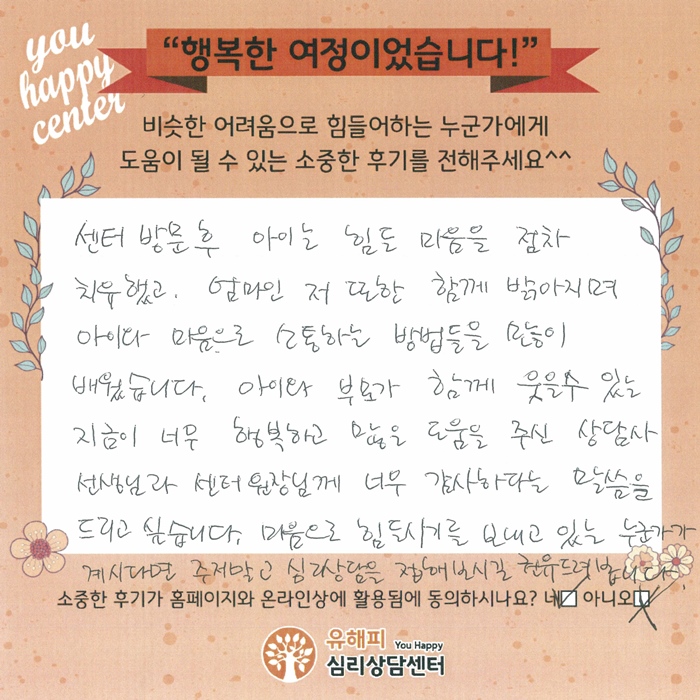 you
happy
center
“행복한 여정이었습니다!”
비슷한 어려움으로 힘들어하는 누군가에게
도움이 될 수 있는 소중한 후기를 전해주세요^^
센터 방문 후 아이는 힘든 마음을 점차
치유했고, 엄마인 저 또한 함께 밝아지며
아이와 마음으로 소통하는 방법들을 많이
배웠습니다. 아이와 부모가 함께 웃을수 있는
지금이 너무 행복하고 많은 도움을 주신 상담사
선생님과 센터 원장님께 너무 감사하다는 말씀을
드리고 싶습니다. 마음으로 힘든시기를 보내고 있는 누군가가
계시다면 주저말고 심리상담을 접해보시길 권유드려봅니다.
소중한 후기가 홈페이지와 온라인상에 활용됨에 동의하시나요? 네□ 아니오□
유해피 You Happy
심리상담센터